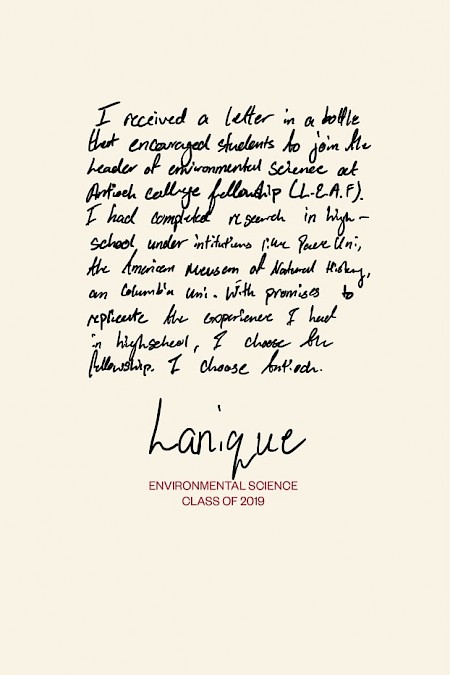 I received a letter in a bottle
that encouraged students to join the
Leader of environmental science at
Antioch college fellowship (L.E.A.F).
I had completed research in high-
school under intitutions like Pace Uni,
the American Museum of Natural History,
an Columbia Uni. With promises to
replicate the experience I had
in highschool, I choose the
fellowship. I choose Antioch.
Lanique
ENVIRONMENTAL SCIENCE
CLASS OF 2019